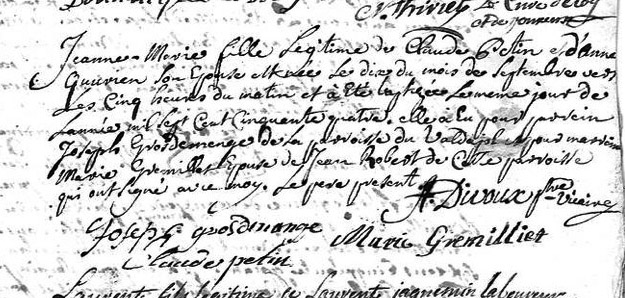 N. Thiriet
Jeanne Marie fille Legitime de Claude Petin et d'anne
Quirien Son Epouse est née Le dix du mois de Septembre vers
Les Cinq heures du matin et a Eté baptisée Le même jour de
L'année mil Sept Cent Cinquante quatre, elle a Eu pour parein
Joseph Grosdemenge de La parroisse du Valdajol et pour mareine
Marie Gremillet Epouse de Jean Robert de Cette parroisse
qui ont signé avec moy. Le pere present
A. Divoux ptre Vicaire
Joseph Grosdmange
Marie Gremilliet
Claude petin
Laurent fils legitime de Laurent jaquemin laboureur